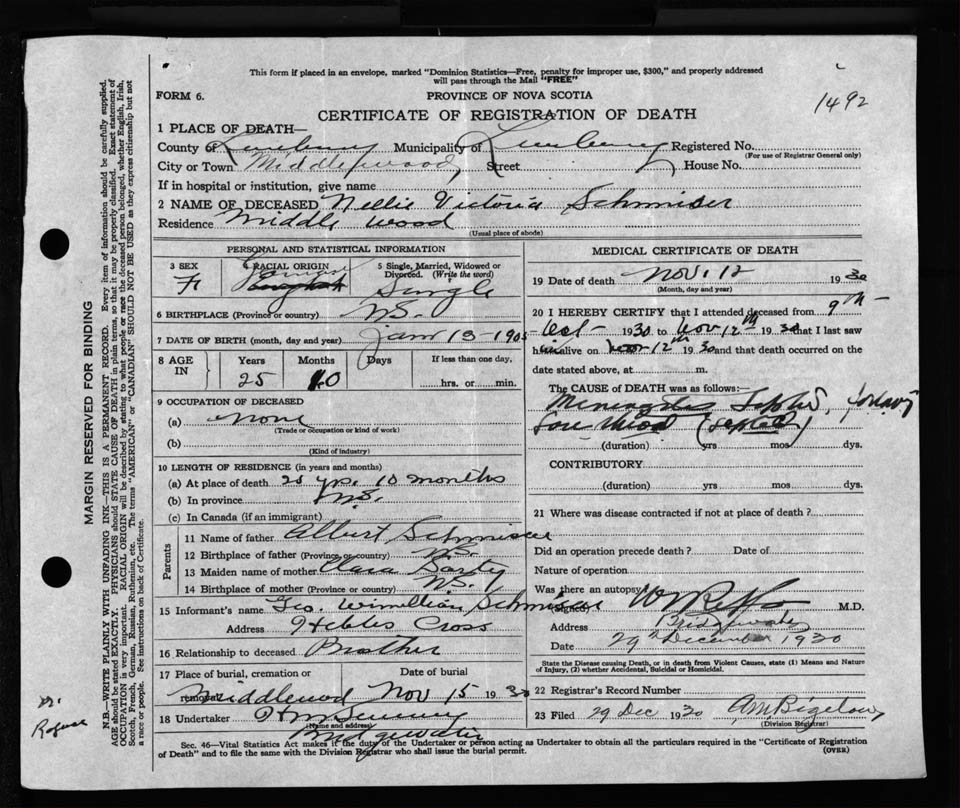 This form if placed in an envelope, marked "Dominion Statistics—Free, penalty for improper use, $300," and properly addressed
will pass through the Mail "FREE"
FORM 6.
PROVINCE OF NOVA SCOTIA
1492
CERTIFICATE OF REGISTRATION OF DEATH
1 PLACE OF DEATH—
County of Lunenburg Municipality of Lunenburg Registered No.
(For use of Registrar General only)
City or Town Middlewood Street House No.
If in hospital or institution, give name
2 NAME OF DECEASED Nellie Victoria Schmiser
Residence Middle Wood
(Usual place of abode)
PERSONAL AND STATISTICAL INFORMATION
3 SEX
F
4 RACIAL ORIGIN
German
English
5 Single, Married, Widowed or
Divorced. (Write the word)
Single
6 BIRTHPLACE (Province or country) N.S.
7 DATE OF BIRTH (month, day and year) Jan 13-1905
8 AGE
IN
Years
25
Months
10
Days
If less than one day,
hrs. or min.
9 OCCUPATION OF DECEASED
(a) none
(Trade or occupation or kind of work)
(b)
(Kind of industry)
10 LENGTH OF RESIDENCE (in years and months)
(a) At place of death 25 yrs. 10 months
(b) In province N.S.
(c) In Canada (if an immigrant)
Parents
11 Name of father Albert Schmiser
12 Birthplace of father (Province or country) N.S.
13 Maiden name of mother Clara
14 Birthplace of mother (Province or country) N.S.
15 Informant's name Geo. Schmiser
Address Hebbs Cross
16 Relationship to deceased Brother
17 Place of burial, cremation or
removal Middlewood
Date of burial
Nov 15 1930
18 Undertaker
(Name and address)
Bridgewater
MEDICAL CERTIFICATE OF DEATH
19 Date of death Nov. 12 1930
(Month, day and year)
20 I HEREBY CERTIFY that I attended deceased from 9th
Oct 1930 to Nov 12th 1930 that I last saw
alive on Nov 12th 1930 and that death occurred on the
date stated above, at m.
The CAUSE of DEATH was as follows:—
Meningitis
(duration) yrs mos. dys.
CONTRIBUTORY
(duration) yrs mos. dys.
21 Where was disease contracted if not at place of death?
Did an operation precede death? Date of
Nature of operation
Was there an autopsy?
(Signed) M.D.
Address Bridgewater
Date 29th December 1930
State the Disease causing Death, or in death from Violent Causes, state (1) Means and Nature
of Injury, (2) whether Accidental, Suicidal or Homicidal.
22 Registrar's Record Number
23 Filed 29 Dec 1930 A.M. Bigelow
(Division Registrar)
Sec. 46—Vital Statistics Act makes it the duty of the Undertaker or person acting as Undertaker to obtain all the particulars required in the "Certificate of Registration
of Death" and to file the same with the Division Registrar who shall issue the burial permit.
(OVER)
MARGIN RESERVED FOR BINDING
N.B.—WRITE PLAINLY WITH UNFADING INK—THIS IS A PERMANENT RECORD. Every item of information should be carefully supplied.
AGE should be stated EXACTLY. PHYSICIANS should STATE CAUSE OF DEATH in plain terms, so that it may be properly classified. Exact statement of
OCCUPATION is very important. RACIAL ORIGIN will be described by stating to what people or race the deceased person belonged, whether English, Irish,
Scotch, French, German, Russian, Ruthenian, etc. The terms "AMERICAN" or "CANADIAN" SHOULD NOT BE USED as they express citizenship but not
a race or people. See instructions on back of Certificate.